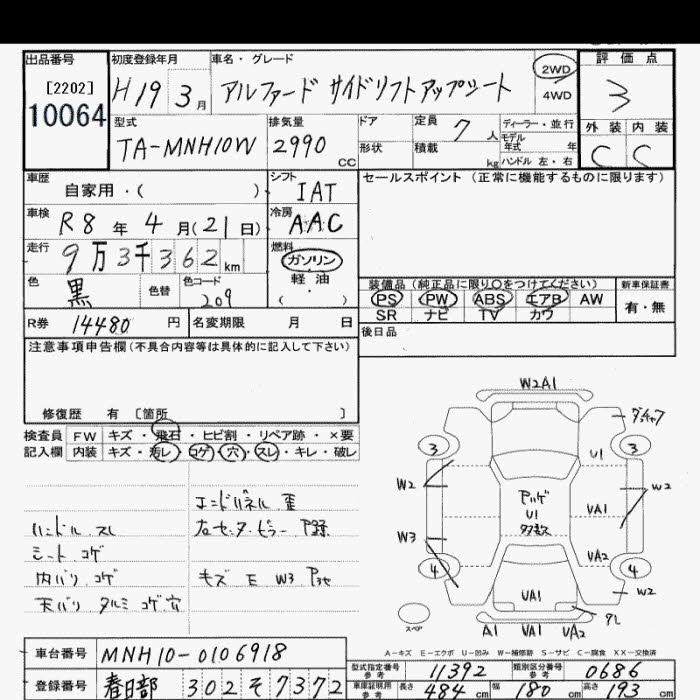 出品番号
[2202]
10064
初度登録年月
H19 3月
車名・グレード
アルファード サイドリフトアップシート
2WD
4WD
評価点
3
外装 内装
C C
型式
TA-MNH10W
排気量
2990
CC
ドア
形状
定員 7人
積載 kg
ディーラー・並行
モデル年式 年
ハンドル 左・右
車歴
自家用・( )
シフト
IAT
セールスポイント (正常に機能するものに限ります)
車検
R8年4月(21日)
冷房
AAC
走行
9万3千362km
燃料
ガソリン
軽油
( )
色
黒
色替
色コード
209
装備品 (純正品に限り○をつけてください)
PS PW ABS エアB AW
SR ナビ TV カワ
新車保証書
有・無
R券 14480 円
名変期限 月 日
後日品
注意事項申告欄(不具合内容等は具体的に記入して下さい)
修復歴 有 [箇所 ]
検査員
記入欄
FW キズ・飛石・ヒビ割・リペア跡・×要
内装 キズ・汚レ・コゲ・穴・スレ・キレ・破レ
エンドパネル 歪
ハンドル スレ
シート コゲ
内バリ コゲ
天バリ タルミ コゲ 穴
キズ E W3
W2A1
3
3
U1
W2
W2
U1
VA1
W3
VA2
4
4
W2
VA1
A1 VA1 VA2
スペア
A-キズ E-エクボ U-凹み W-補修跡 S-サビ C-腐食 XX-交換済
車台番号
MNH10-0106918
登録番号
春日部 302 そ 7372
型式指定番号
参考
11392
類別区分番号
参考
0686
車庫証明用
参考
長さ 484 cm
幅 180 cm
高さ 193 cm